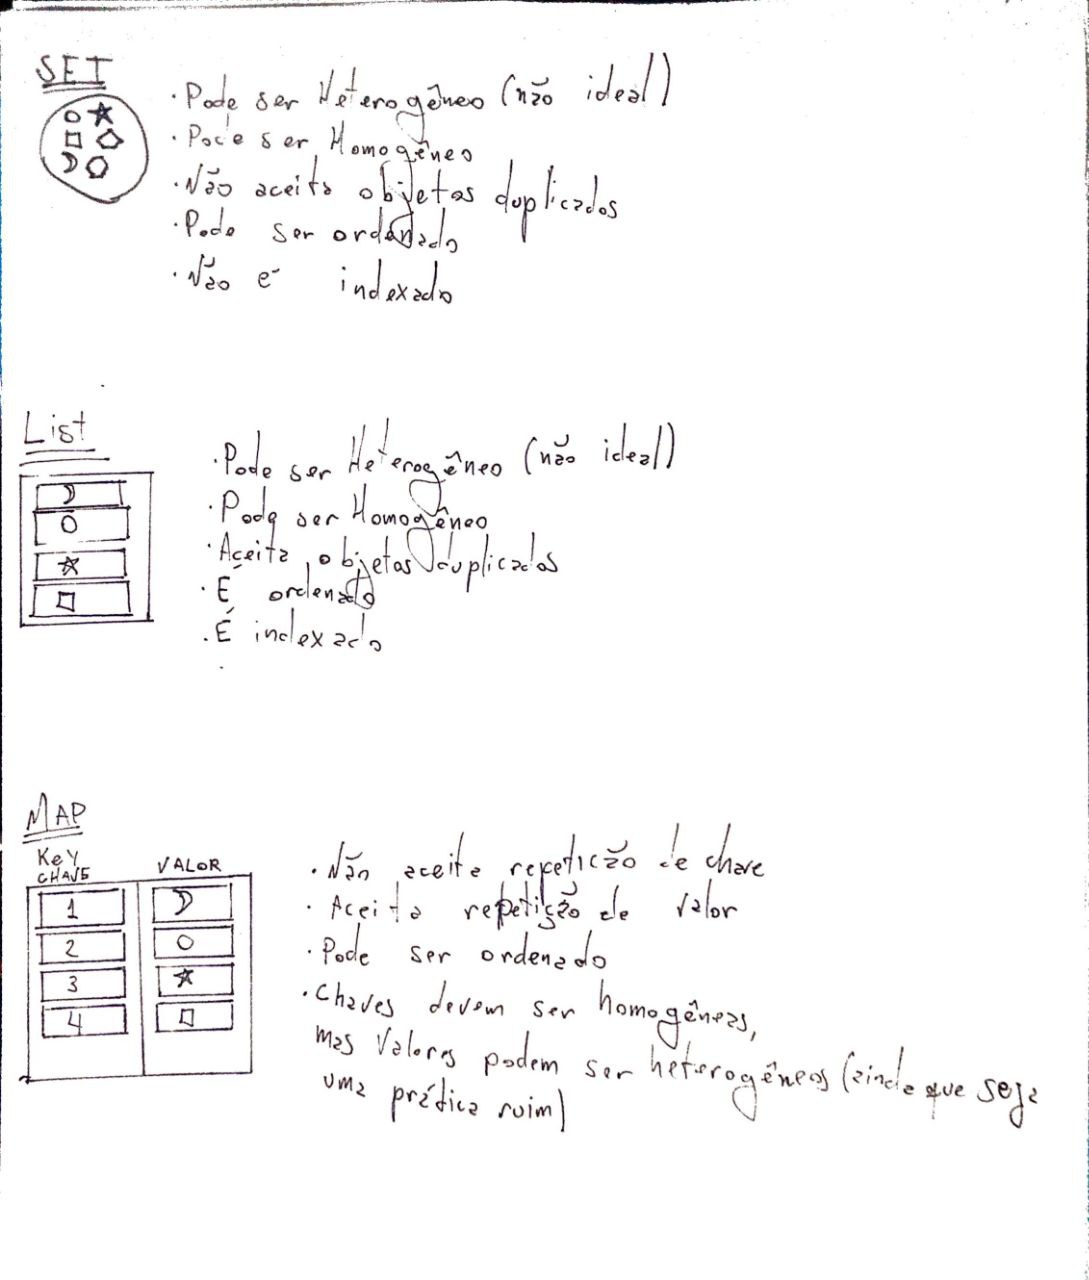 SET
· Pode ser Heterogêneo (não ideal)
· Pode ser Homogêneo
· Não aceita objetos duplicados
· Pode ser ordenado
· Não é indexado
List
· Pode ser Heterogêneo (não ideal)
· Pode ser Homogêneo
· Aceita objetos duplicados
· É ordenado
· É indexado
MAP
KeY
CHAVE VALOR
1
2
3
4
· Não aceita repetição de chave
· Aceita repetição de valor
· Pode ser ordenado
· Chaves devem ser homogêneas,
mas Valores podem ser heterogêneos (ainda que seja
uma prática ruim)